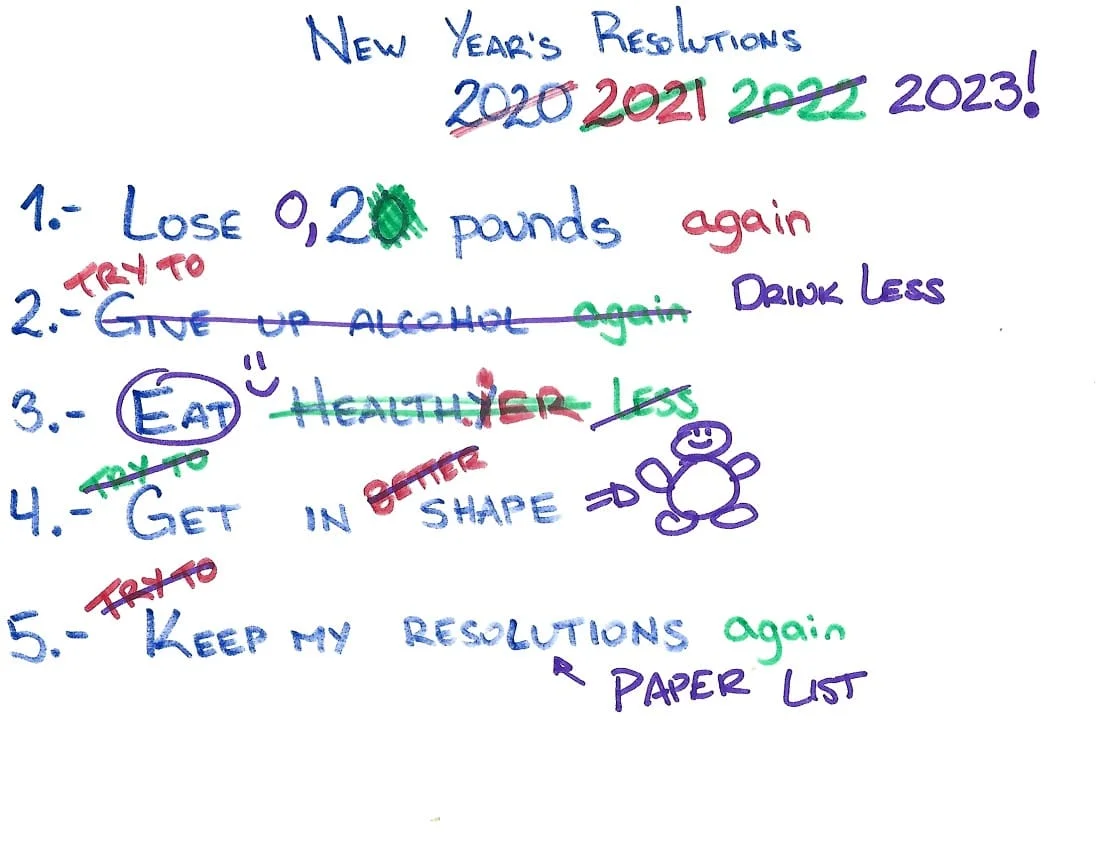 New Year's Resolutions
2020 2021 2022 2023!
1.- Lose 0,20 pounds again
TRY TO
2.- Give up alcohol again Drink Less
3.- Eat Healthyier Less
TRY TO
4.- Get in BETTER shape =D
TRY TO
5.- Keep my resolutions again
PAPER LIST